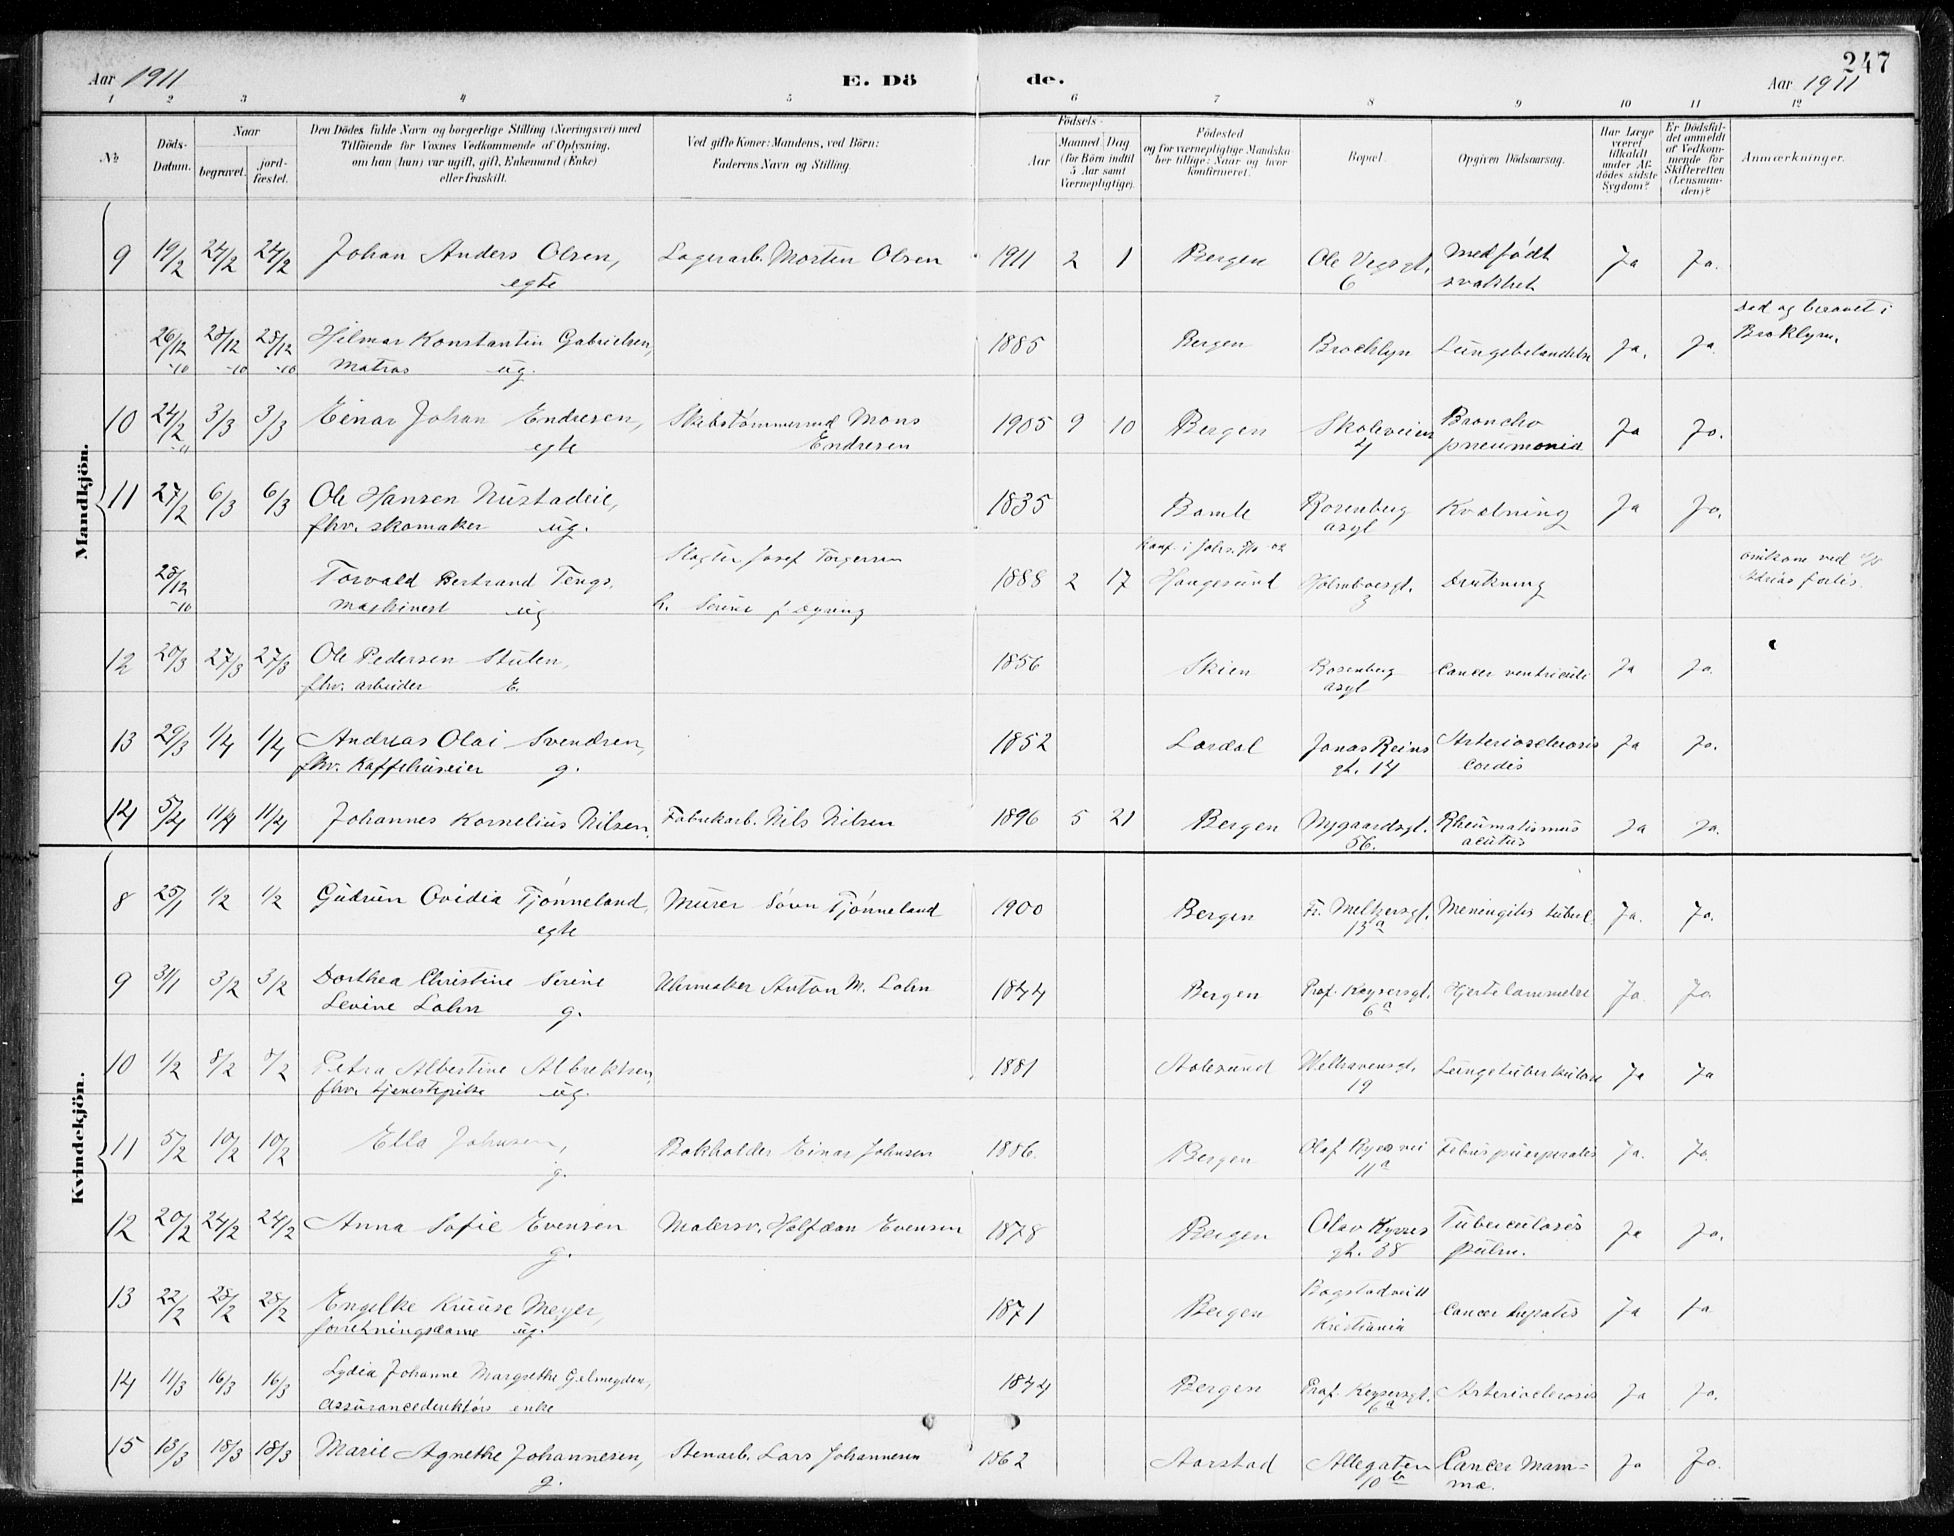 247
Aar 1911 E. Dö de. Aar 1911
1 2 3 4 5 6 7 8 9 10 11 12
No.
Döds-Datum.
Naar
begravet.
jord-fæstet.
Den Dödes fulde Navn og borgerlige Stilling (Næringsvei) med
Tilföiende for Voxnes Vedkommende af Oplysning,
om han (hun) var ugift, gift, Enkemand (Enke)
eller fraskilt.
Ved gifte Koner: Mandens, ved Börn:
Faderens Navn og Stilling.
Födsels-
Aar
Maaned Dag
(for Börn indtil
5 Aar samt
Værnepligtige).
Födested
og for værnepligtige Mandska-
ber tillige: Naar og hvor
konfirmeret.
Bopæl.
Opgiven Dödsaarsag.
Har Læge
været
tilkaldt
under Af-
dödes sidste
Sygdom?
Er Dödsfal-
det anmeldt
af Vedkom-
mende for
Skifteretten
(Lensman-
den)?
Anmærkninger.
Mandkjön.
9 19/2 24/2 24/2 Johan Anders Olsen, Lagerarb. Morten Olsen 1911 2 1 Bergen Ole Vigsgt. Medfødt Ja Ja.
egte 6 svakhet
Død og begravet i
26/12 28/12 28/12 Hilmar Konstantin Gabrielsen, 1885 Bergen Brooklyn Lungebetændelse Ja. Ja. Broklyn.
-10 -10 -10 Matros ug.
10 24/2 3/3 3/3 Einar Johan Endresen, Skibstømmermd Mons 1905 9 10 Bergen Skoleveien Broncho Ja Ja.
-11 egte Endresen 4 pneumonia
11 27/2 6/3 6/3 Ole Hansen Nustadeie, 1835 Bamle Rosenberg Kvælning Ja Ja.
fhv. skomaker ug. asyl
Slagter Josef Torgersen
28/12 Torvald Bertrand Tengs, 1888 2 17 Haugesund Holmboesgt. Drukning omkom ved
-10 Maskinest ug 3
12 20/3 27/3 27/3 Ole Pedersen Stulen, 1856 Skien Rosenberg Cancer ventriculi Ja Ja.
fhv. arbeider E. asyl
13 29/3 1/4 1/4 Andreas Olai Svendsen, 1852 Lærdal Jonas Reins Arteriosclerosis Ja Ja.
fhv. Kaffehuseier g. gt. 14 Cordis
14 5/4 11/4 11/4 Johannes Kornelius Nilsen, Fabrikarb. Nils Nilsen 1896 5 21 Bergen Nygaardsgt. Rheumatismus Ja Ja.
56. acutus
Kvindekjön.
8 25/1 1/2 1/2 Gudrun Ovidia Tjønneland, Murer Søvn Tjønneland 1900 Bergen Fr. Meltzersgt. Meningitis tubul. Ja. Ja.
egte 13a
9 31/1 3/2 3/2 Dorthea Christine Serine Uhrmaker Anton M. Lohn 1844 Bergen Prof. Keysersgt. Hjertelammelse Ja. Ja.
Levine Lohn g. 6a
10 1/2 8/2 8/2 Petra Albertine Albrektsen, 1881 Aalesund Welhavensgt. Lungetuberkulose Ja Ja
fhv. tjenestepike ug. 19
11 5/2 10/2 10/2 Ella Johnsen, Bokholder Einar Johnsen 1886 Bergen Olaf Ryes vei Febris puerperalis Ja. Ja.
g. 11a
12 20/2 24/2 24/2 Anna Sofie Evensen Malersv. Halfdan Evensen 1878 Bergen Olav Kyrres Tuberculosis Ja Ja.
g. gt. 38 pulm.
13 22/2 28/2 28/2 Engelke Kruuse Meyer, 1871 Bergen Bogstadvei Cancer hepatis Ja Ja
forretningsdame ug. Kristiania
14 11/3 16/3 16/3 Lydia Johanne Margrethe Gelmeyden, 1844 Bergen Prof. Keysersgt. Arteriosclerosis Ja Ja.
assurancedirektørs enke 6a
15 13/3 18/3 18/3 Marie Agnethe Johannesen, Stenarb. Lars Johannesen 1862 Aarstad Allegaten Cancer Mam- Ja Ja.
g. 10b mæ.